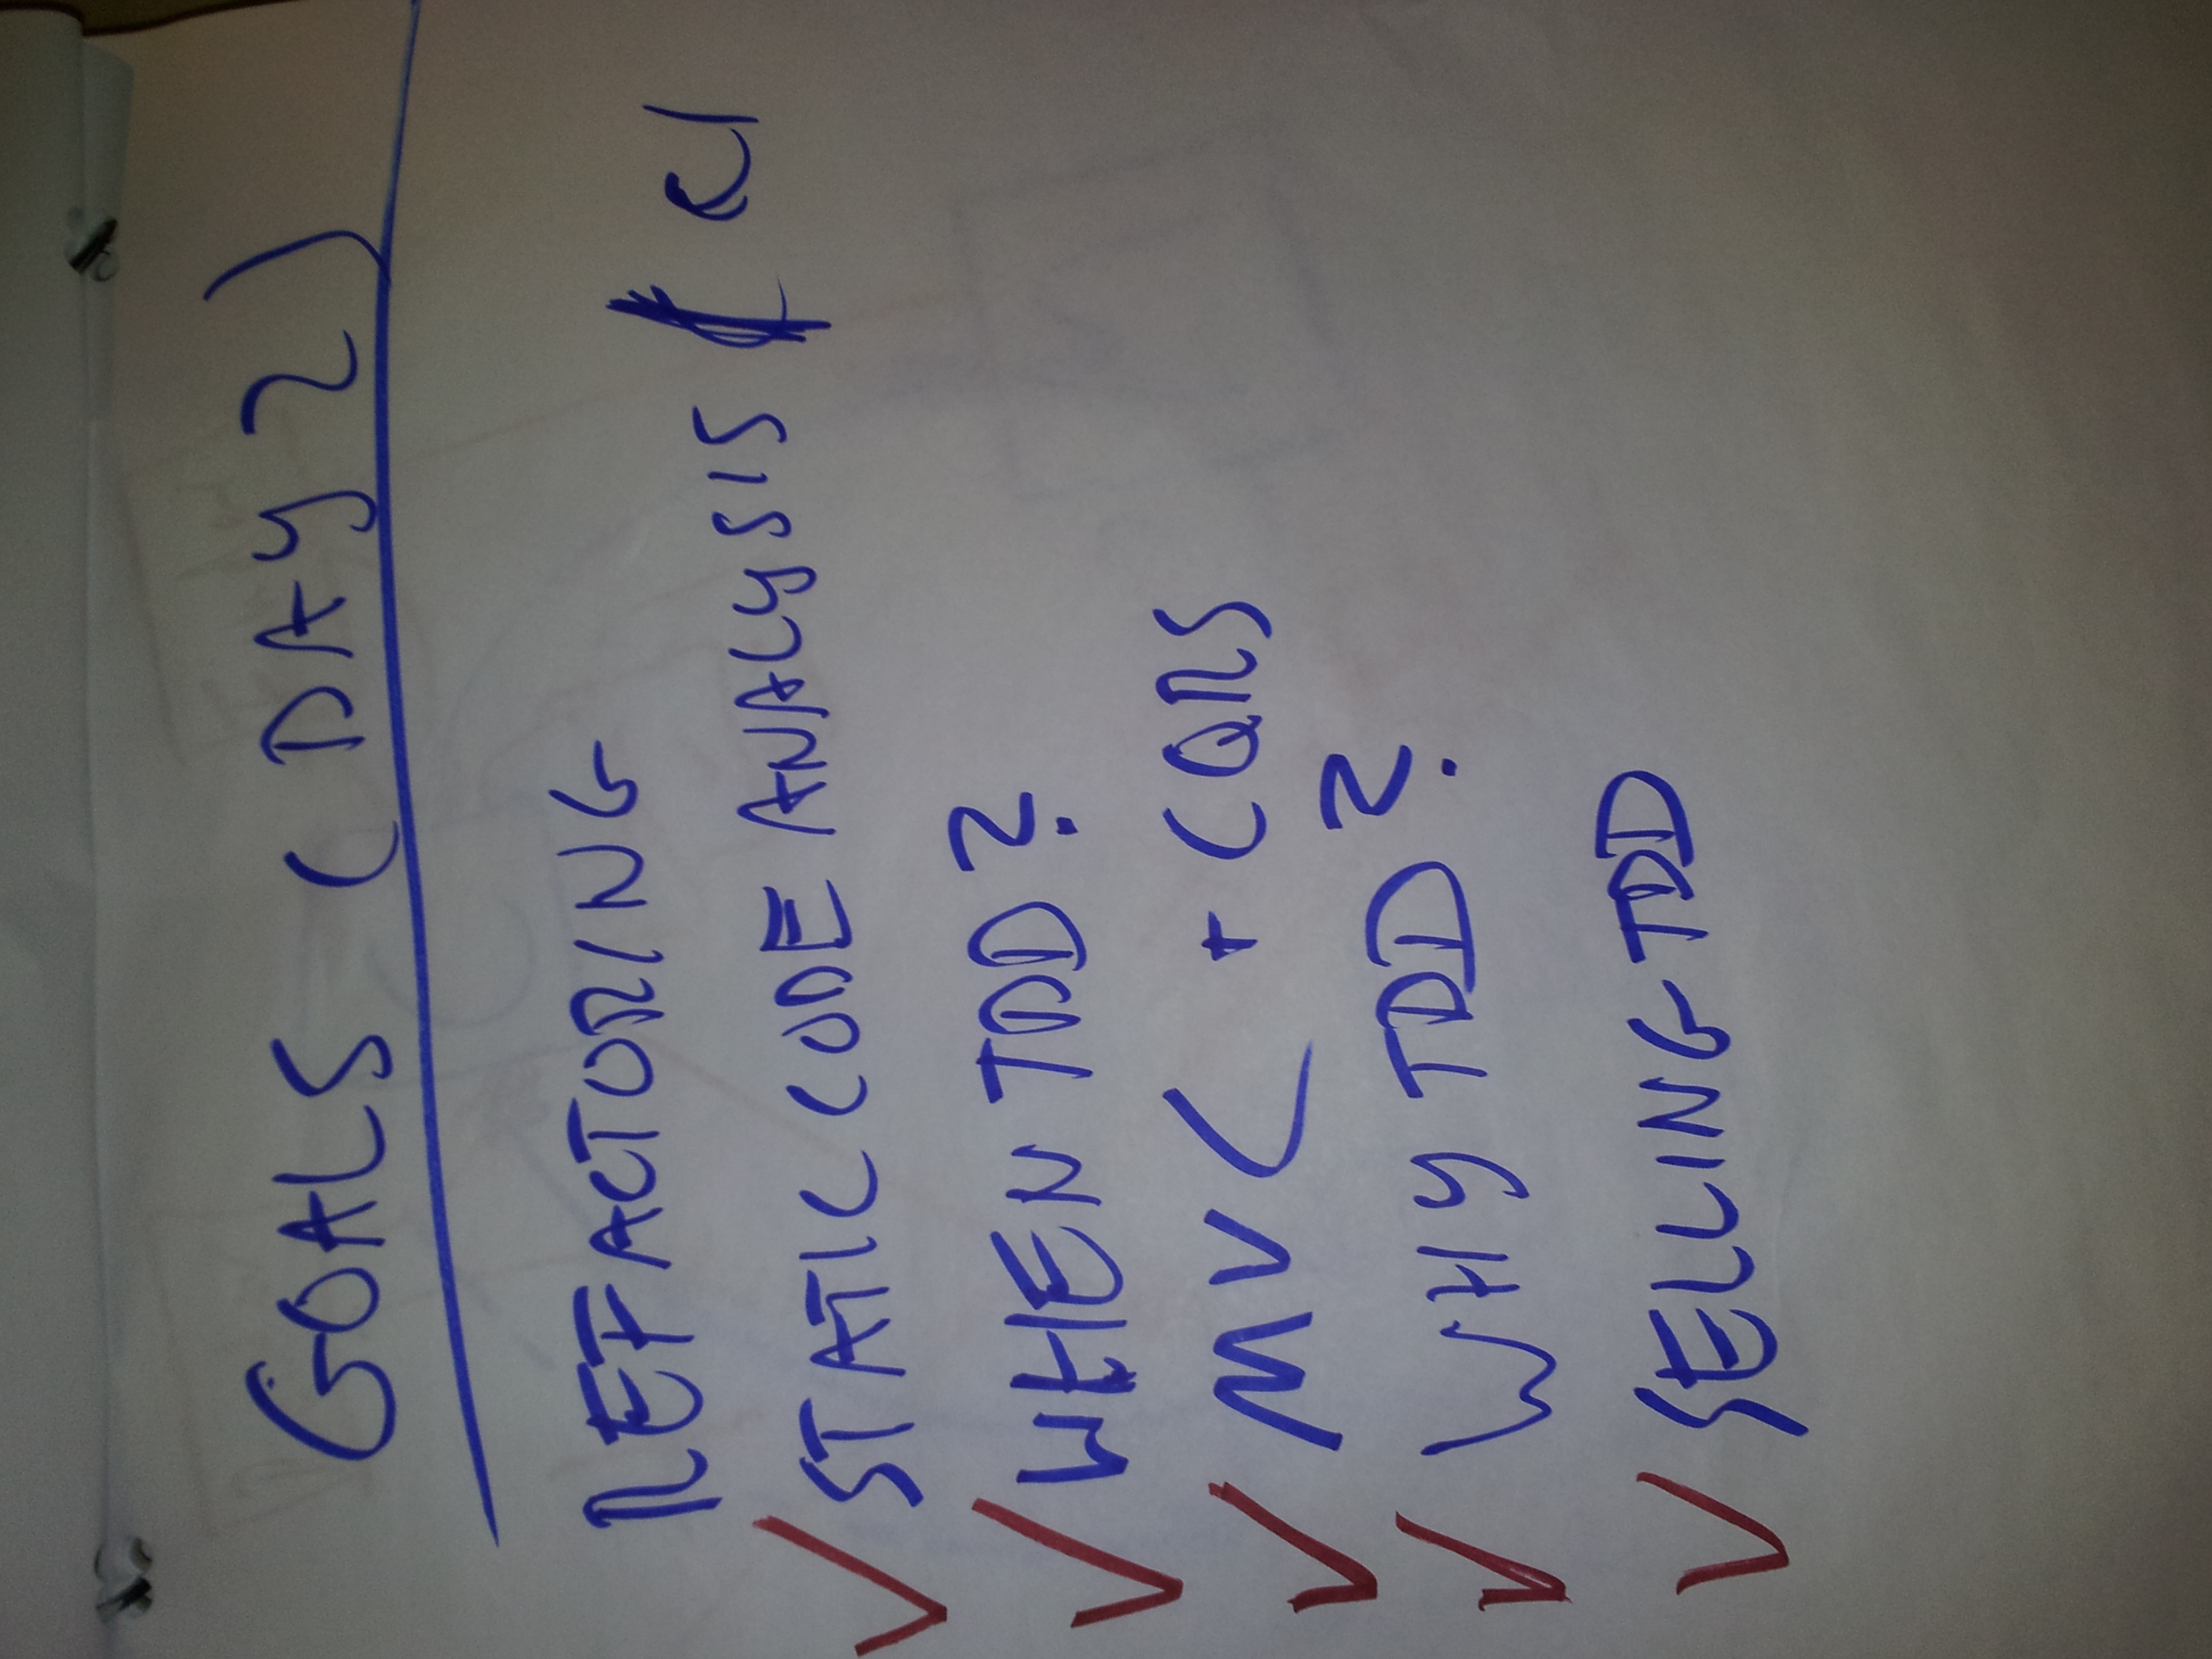 GOALS (DAY 2)
REFACTORING
✓ STATIC CODE ANALYSIS / CI
✓ WHEN TDD?
✓ MVC + CQRS
✓ WHY TDD?
✓ SELLING TDD